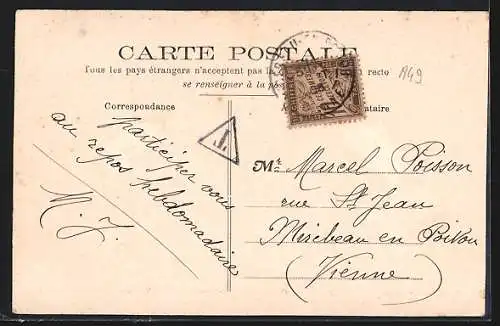 CARTE POSTALE
Tous les pays étrangers n'acceptent pas la recto
se renseigner à la
A49
Correspondance
T
participez vous
au repos hebdomadaire
M. J.
Mr. Marcel Poisson
rue St Jean
Mirebeau en Poitou
(Vienne)